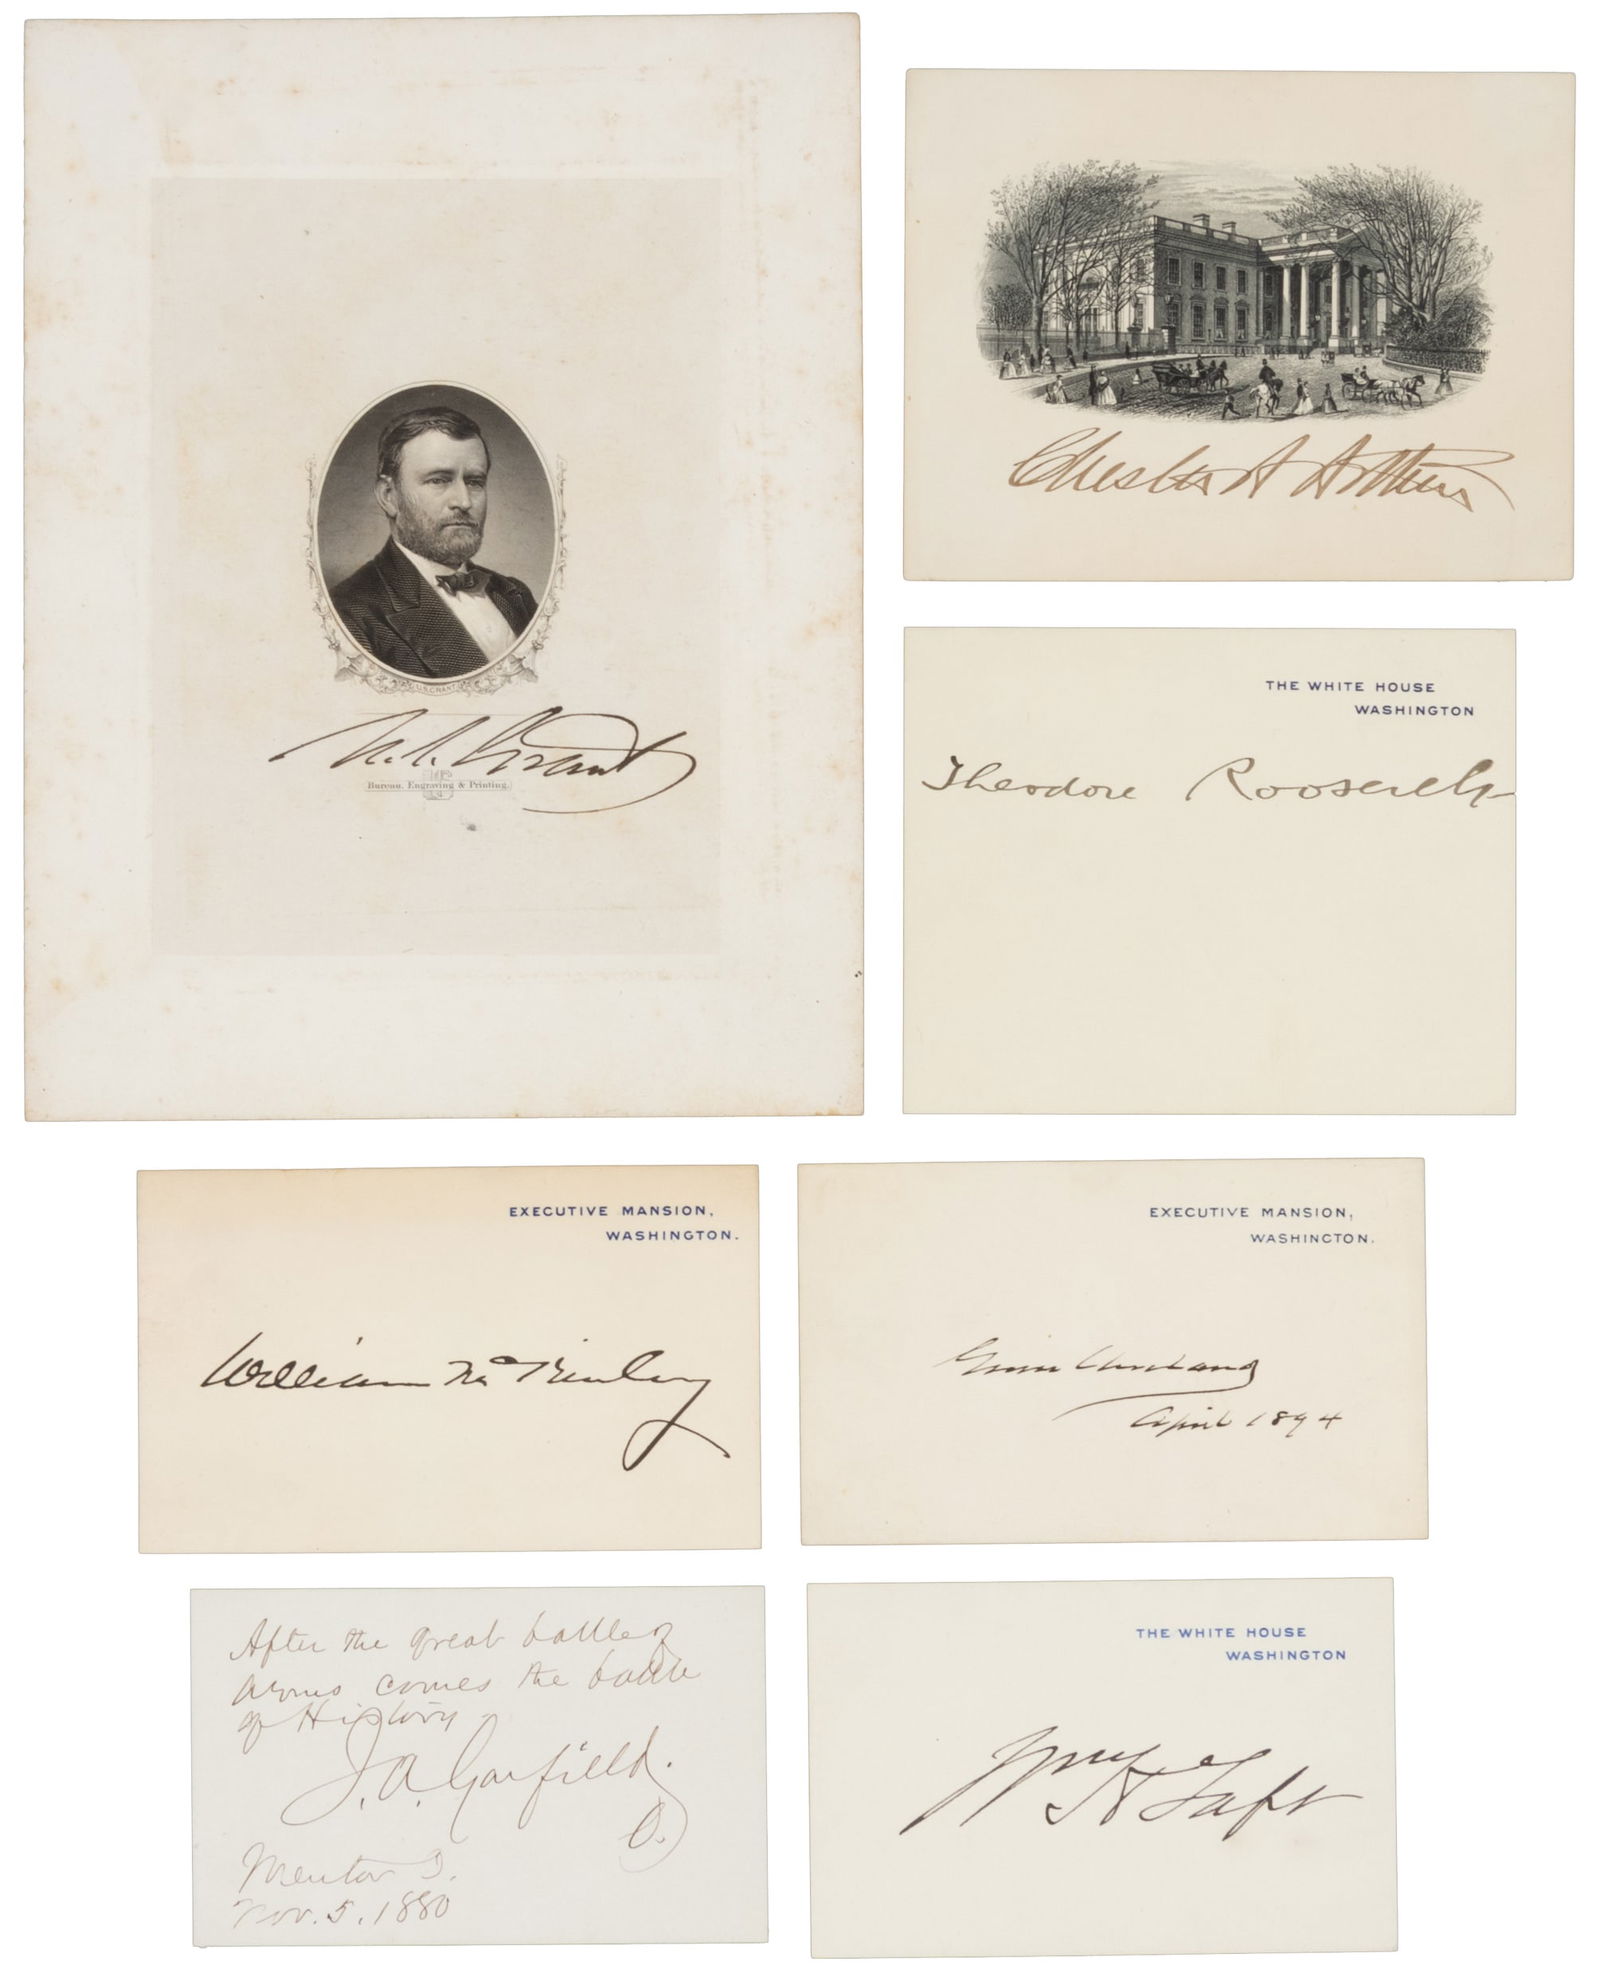 U.S. GRANT.
U. S. Grant
Bureau, Engraving & Printing.
Chester A Arthur
THE WHITE HOUSE
WASHINGTON
Theodore Roosevelt
EXECUTIVE MANSION,
WASHINGTON.
William McKinley
EXECUTIVE MANSION,
WASHINGTON.
Grover Cleveland
April 1894
After the great battle of
arms comes the battle
of History.
J. A. Garfield.
O.
Mentor O.
Nov. 5. 1880
THE WHITE HOUSE
WASHINGTON
Wm H Taft